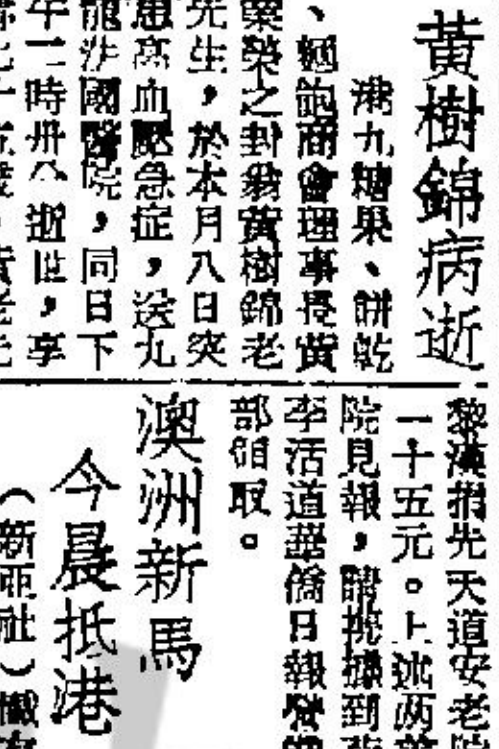 黃樹錦病逝
港九糖果、餅乾
、麵飽商會理事長黃
榮之封翁黃樹錦老
先生，於本月八日突
患高血壓急症，送九
龍法國醫院，同日下
午一時卅八逝世，享
黎漢捐先天道安老院
一十五元。上述兩
院見報，請携據到
李活道華僑日報營
部領取。
澳洲新馬
今晨抵港
（新亞社）